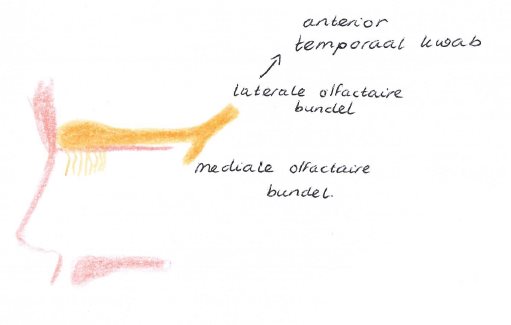 anterior
temporaal kwab
laterale olfactaire
bundel
mediale olfactaire
bundel.